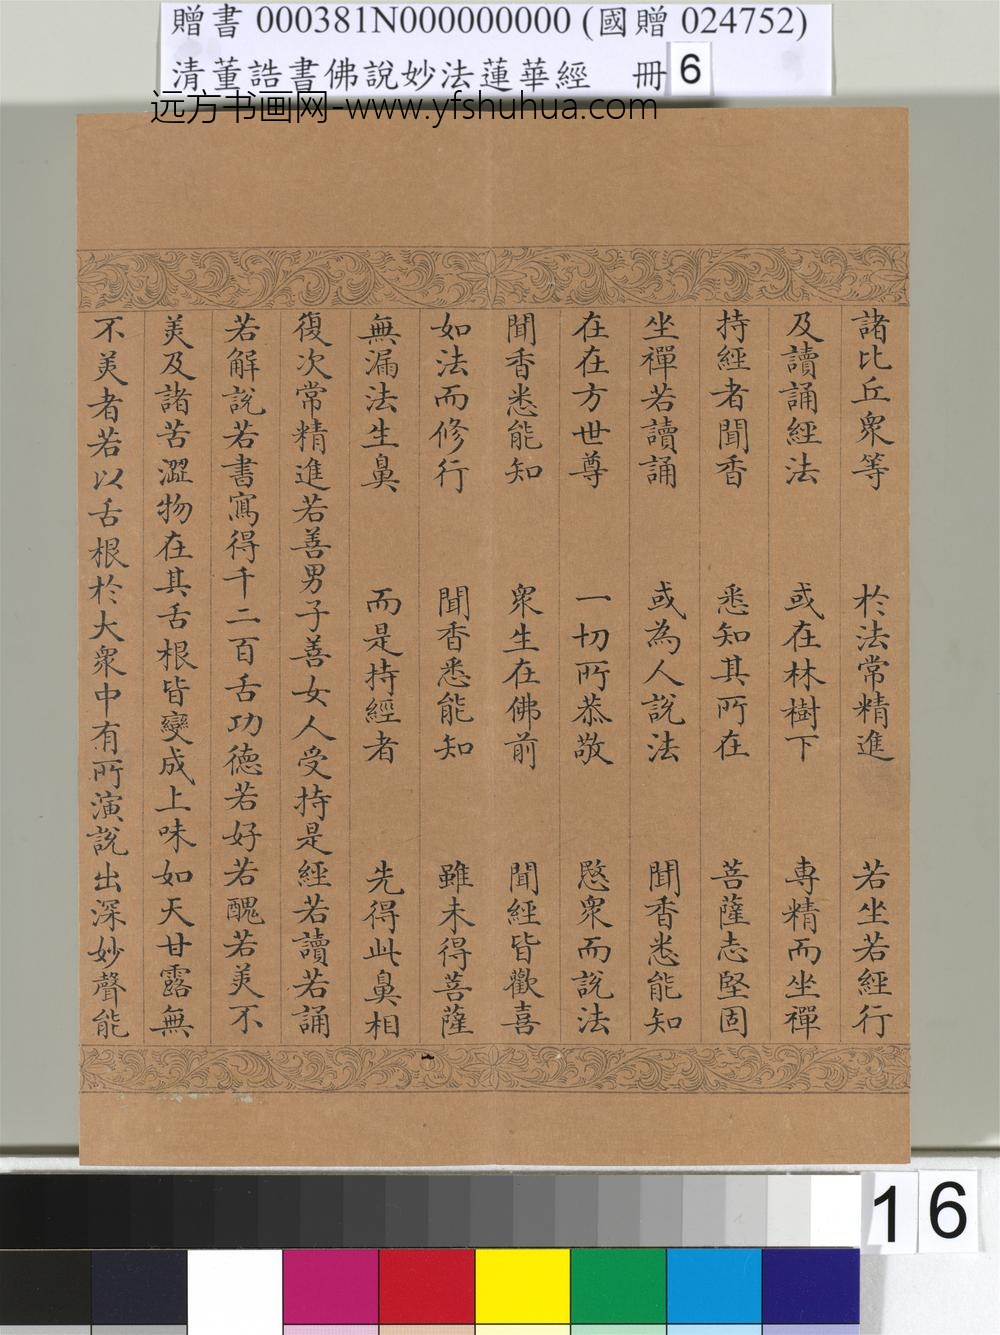 贈書 000381N000000000 (國贈 024752)
清董誥書佛說妙法蓮華經 冊 6
远方书画网-www.yfshuhua.com
諸比丘衆等 於法常精進 若坐若經行
及讀誦經法 或在林樹下 專精而坐禪
持經者聞香 悉知其所在 菩薩志堅固
坐禪若讀誦 或為人說法 聞香悉能知
在在方世尊 一切所恭敬 愍衆而說法
聞香悉能知 衆生在佛前 聞經皆歡喜
如法而修行 聞香悉能知 雖未得菩薩
無漏法生鼻 而是持經者 先得此鼻相
復次常精進若善男子善女人受持是經若讀若誦
若解說若書寫得千二百舌功德若好若醜若美不
美及諸苦澀物在其舌根皆變成上味如天甘露無
不美者若以舌根於大衆中有所演說出深妙聲能
16